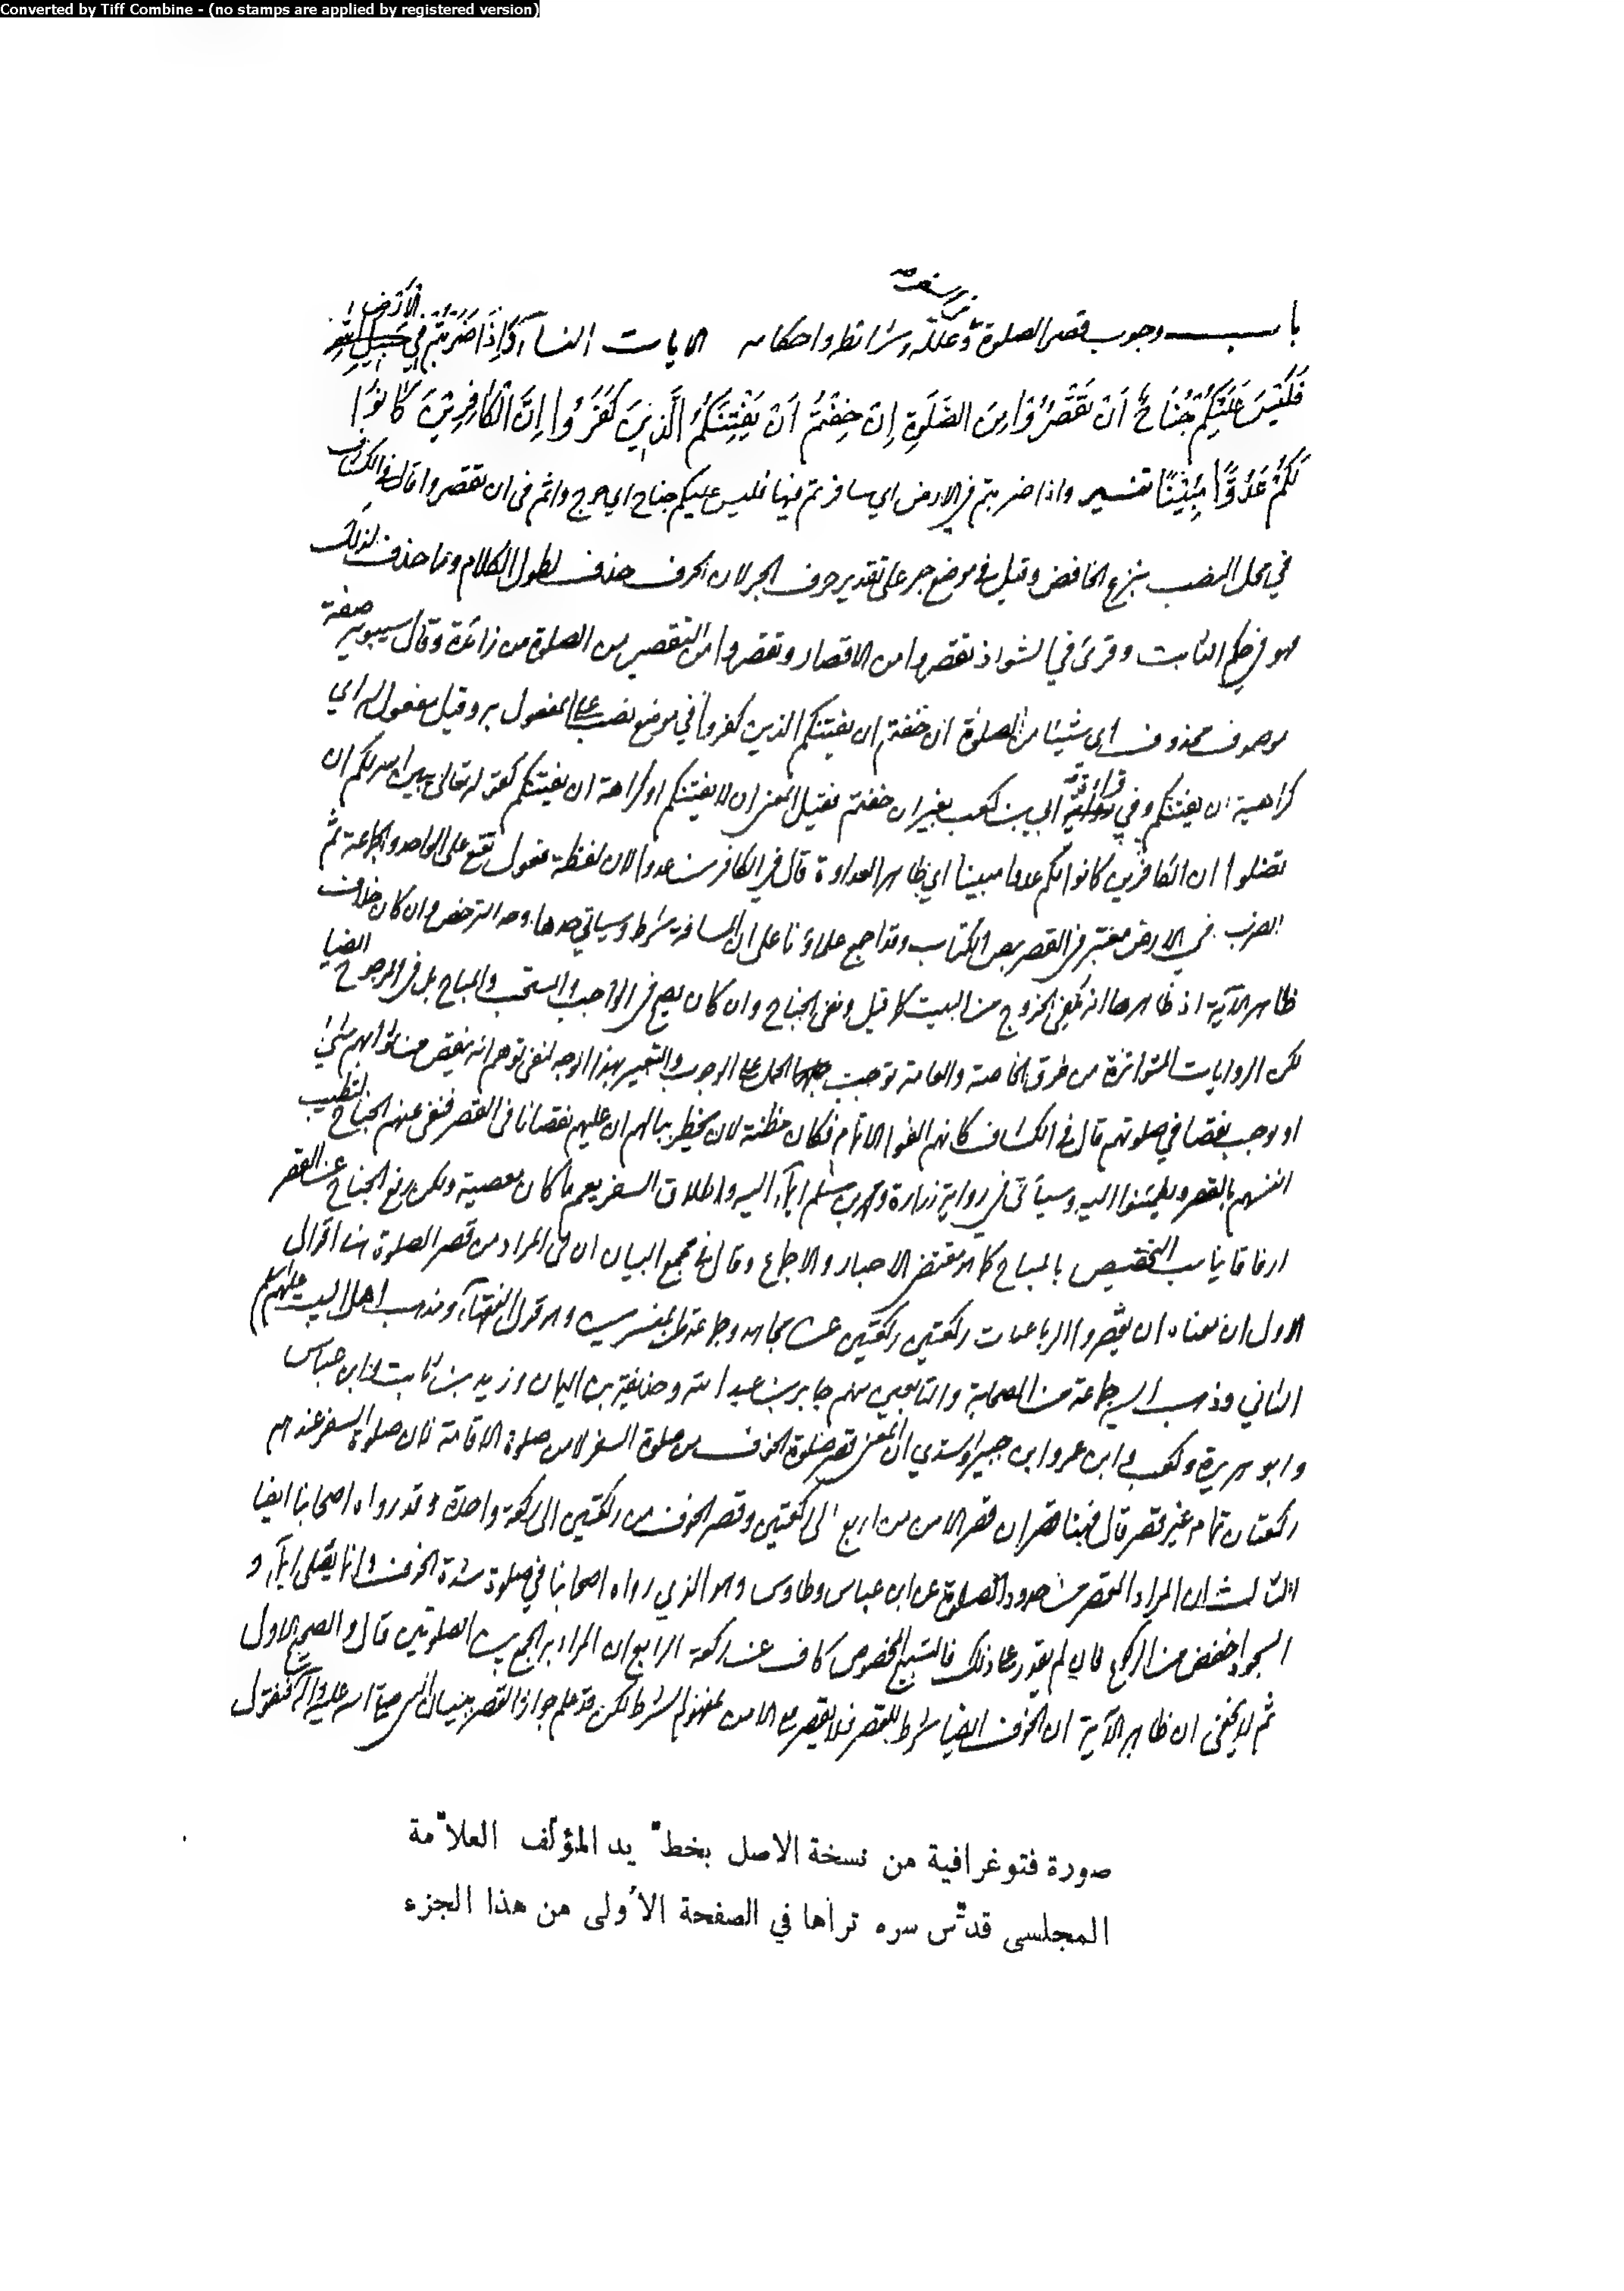 Converted by Tiff Combine - (no stamps are applied by registered version)
باب وجوب قصر الصلوة وعلله وشرائطه واحكامه الايات النسآء وَاِذَا ضَرَبْتُمْ فِي الْاَرْضِ
فَلَيْسَ عَلَيْكُمْ جُنَاحٌ اَنْ تَقْصُرُوْا مِنَ الصَّلٰوةِ اِنْ خِفْتُمْ اَنْ يَفْتِنَكُمُ الَّذِيْنَ كَفَرُوا اِنَّ الْكَافِرِيْنَ كَانُوْا
لَكُمْ عَدُوًّا مُبِيْنًا تفسير واذا ضربتم في الارض اي سافرتم فيها فليس عليكم جناح اي حرج واثم في ان تقصروا قال في الكشاف
في محل النصب بنزع الخافض وقيل في موضع جر على تقدير حرف الجر لان الحرف حذف لطول الكلام وما حذف لذلك
فهو في حكم الثابت وقرئ في الشواذ تقصروا من الاقصار وتقصروا من التقصير من الصلوة من زائدة وقال سيبويه صفة
موصوف محذوف اي شيئا من الصلوة ان خفتم ان يفتنكم الذين كفروا في موضع نصب على المفعول به وقيل مفعول له اي
كراهية ان يفتنكم وفي قراءة ابي بن كعب بغير ان خفتم فقيل المعنى ان لا يفتنكم او كراهة ان يفتنكم كقوله تعالى يبين الله لكم ان
تضلوا ان الكافرين كانوا لكم عدوا مبينا اي ظاهر العداوة قال في الكافرين عدوا لان لفظة فعول تقع على الواحد والجماعة ثم
الضرب في الارض معتبر في القصر بنص الكتاب وقد اجمع علماؤنا على ان المسافة شرط وسياتي حدها وحد الترخص وان كان خلاف
ظاهر الآية اذ ظاهرها انه يكفي الخروج من البيت كما قيل ونفي الجناح وان كان يصح في الواجب والمستحب والمباح بل في المرجوح ايضا
لكن الروايات المتواترة من طرق الخاصة والعامة توجب الحمل على الوجوب والتعبير بهذا الوجه لنفي توهم انه ينقص من ثوابهم شيء
او يوجب نقصا في صلوتهم قال في الكشاف كانهم الفوا الاتمام فكان مظنة لان يخطر ببالهم ان عليهم نقصانا في القصر فنفى عنهم الجناح لتطيب
انفسهم بالقصر ويطمئنوا اليه وسيأتي في رواية زرارة ومحمد بن مسلم ايماء اليه واطلاق السفر يعم ما كان معصية ولكن رفع الجناح عن القصر
ارفاقا يناسب التخصيص بالمباح كما هو مقتضى الاخبار والاجماع وقال في مجمع البيان ان في المراد من قصر الصلوة هنا اقوال
الاول ان معناه ان يقصروا الرباعيات ركعتين ركعتين عن مجاهد وجماعة من المفسرين وهو قول الفقهآء ومذهب اهل البيت عليهم السلم
الثاني وذهب اليه جماعة من الصحابة والتابعين منهم جابر بن عبد الله وحذيفة بن اليمان وزيد بن ثابت وابن عباس
وابو هريرة وكعب وابن عمر وابن جبير والسدي ان المعنى قصر صلوة الخوف من صلوة السفر لا من صلوة الاقامة لان صلوة السفر عندهم
ركعتان تمام غير قصر قال فهنا قصران قصر الامن من اربع الى ركعتين وقصر الخوف من ركعتين الى ركعة واحدة وقد رواه اصحابنا ايضا
الثالث ان المراد القصر من حدود الصلوة عن ابن عباس وطاوس وهو الذي رواه اصحابنا في صلوة شدة الخوف وانها يصلى ايماء و
السجود اخفض من الركوع فان لم يقدر على ذلك فالتسبيح المخصوص كاف عن ركعة الرابع ان المراد به الجمع بين الصلوتين قال والصحيح الاول
ثم لا يخفى ان ظاهر الآية ان الخوف ايضا شرط للقصر فلا يقصر مع الامن لمفهوم الشرط لكن قد علم جواز القصر ببيان النبي صلى الله عليه وآله فنقول
صورة فتوغرافية من نسخة الاصل بخطّ يد المؤلّف العلاّمة
المجلسى قدّس سره تراها في الصفحة الأولى من هذا الجزء